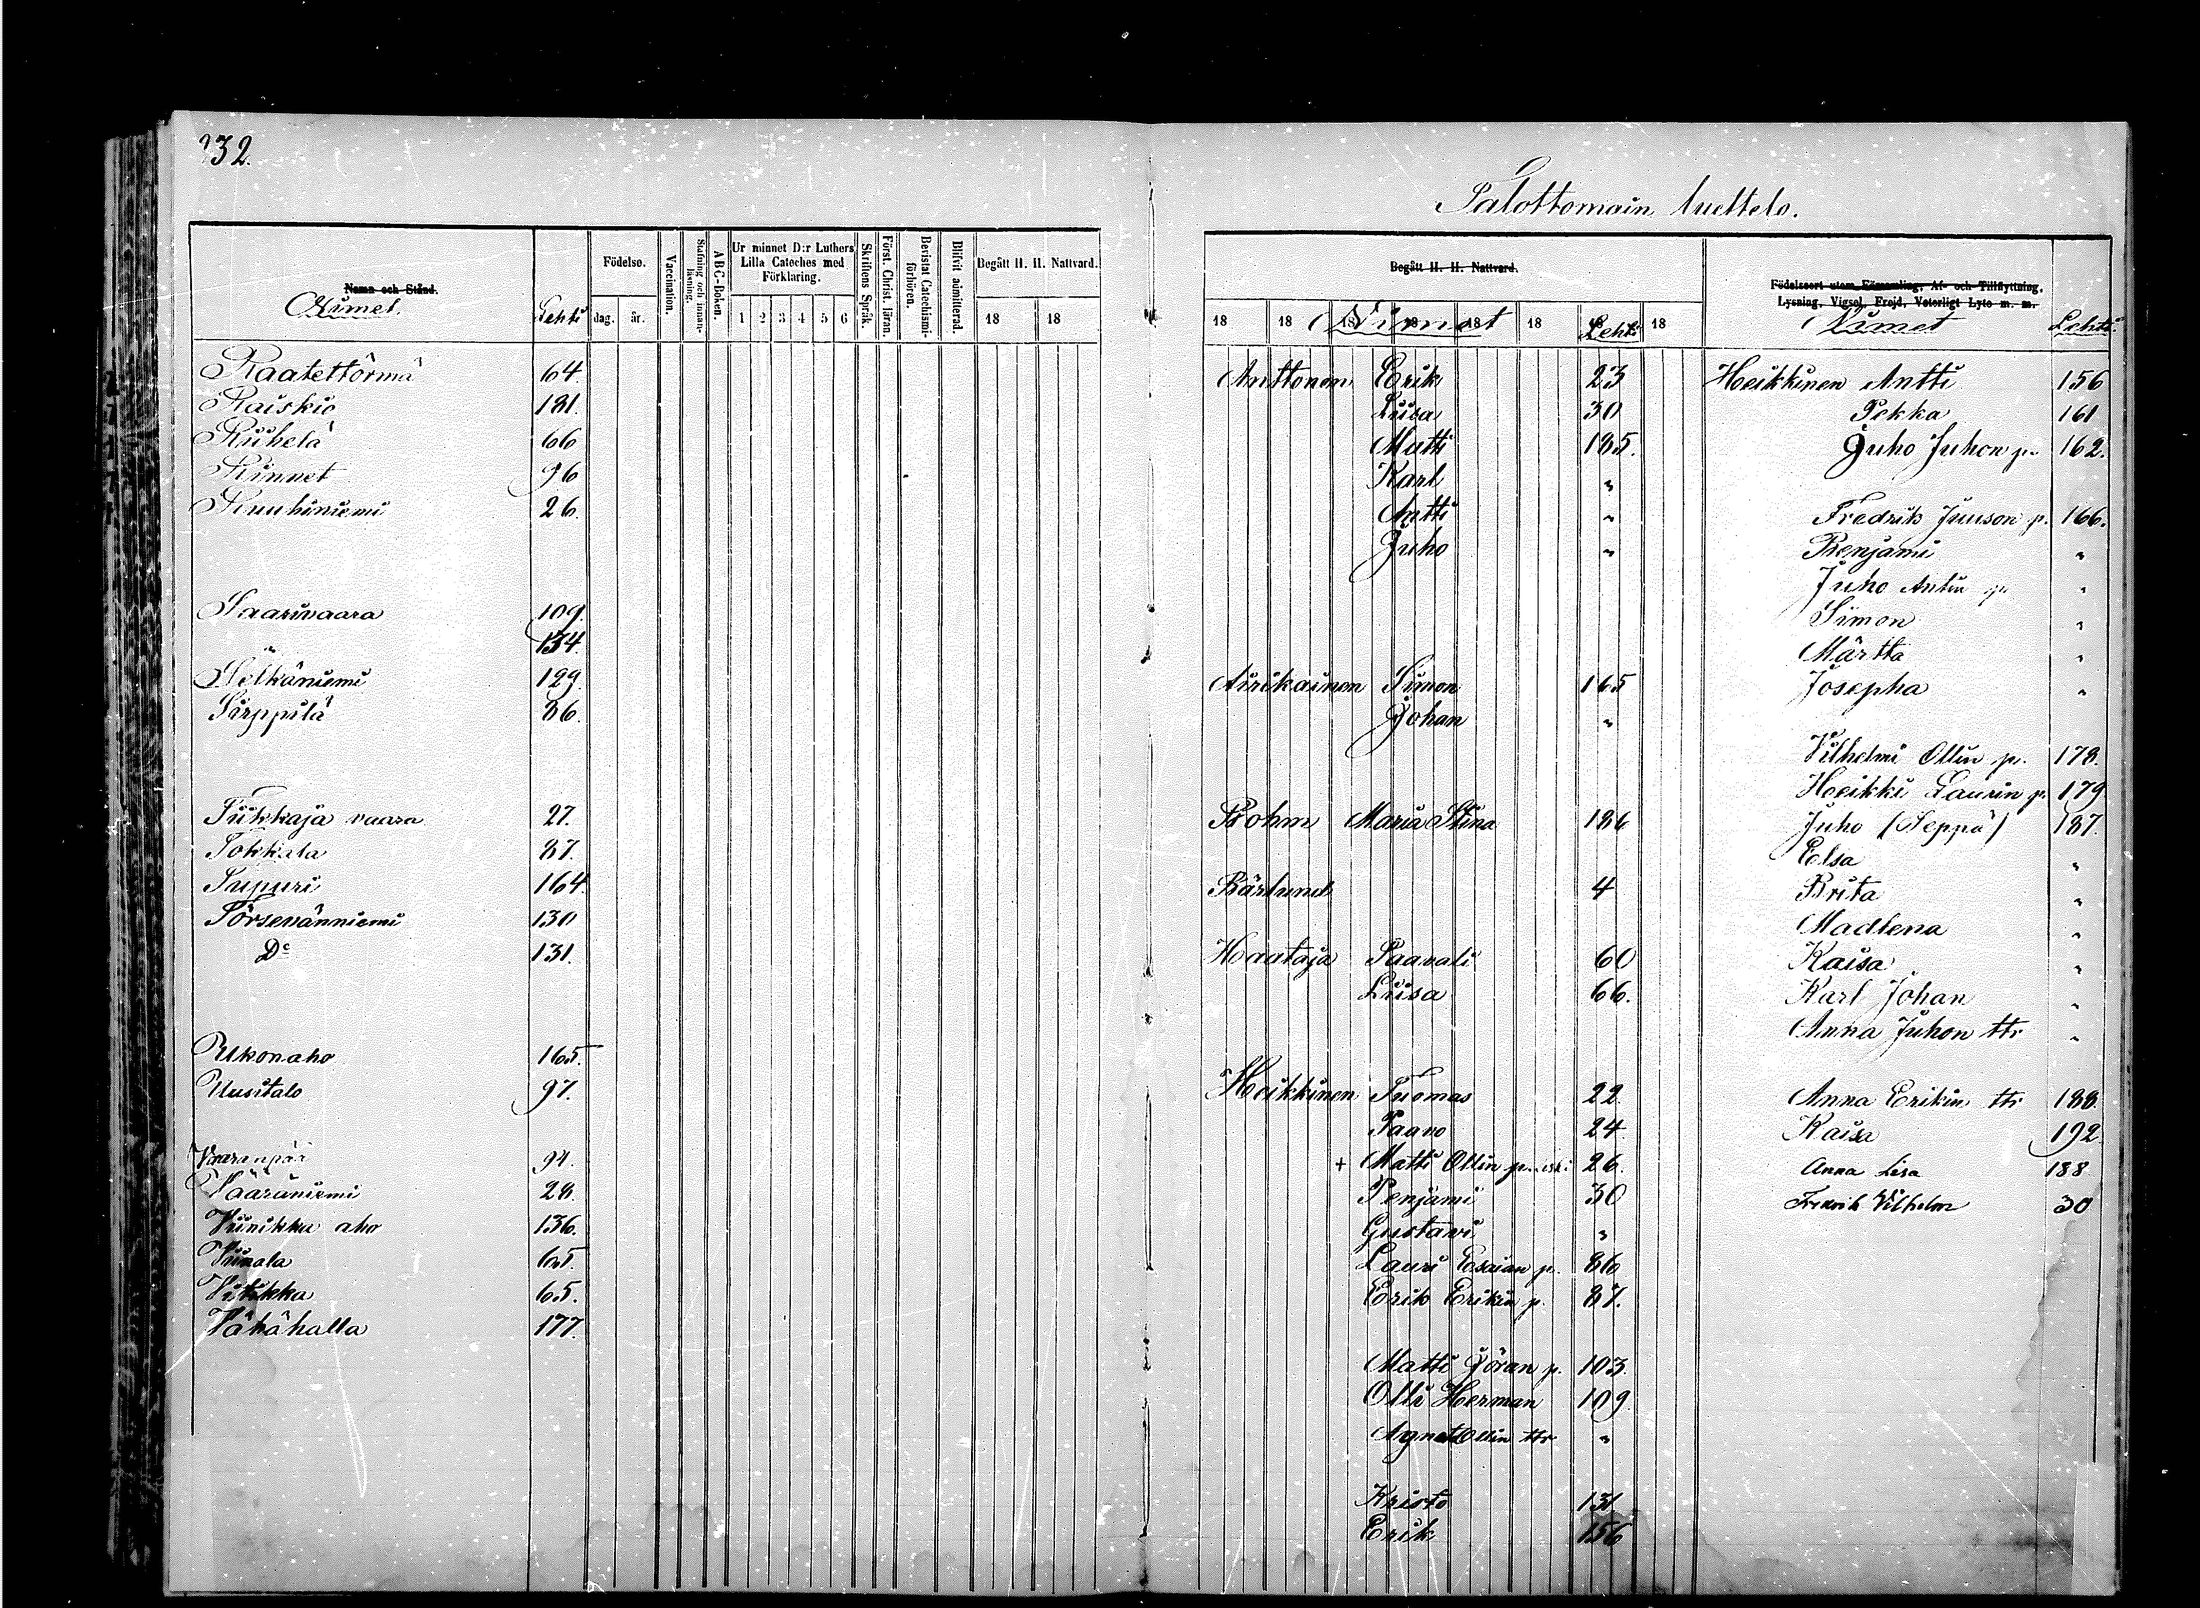 232.
Namn och Stånd.
Nimet.
Lehti
Födelse.
dag.
år.
Vaccination.
Stafning och Innanläsning.
A B C-Boken.
Ur minnet D:r Luthers Lilla Cateches med Förklaring.
1 2 3 4 5 6
Skriftens Språk.
Först. Christ. läran.
Bevistat Catechismiförhören.
Blifvit admitterad.
Begått H. H. Nattvard.
18 18
Raatettörmä 64.
Raiskio 181.
Riihelä 66
Rinnet 96
26.
Saarivaara 109.
" 134.
Selkäniemi 129.
Sirppilä 86.
Tiikkaja vaara 27.
Tokkala 87.
Tupuri 164
Törsevänniemi 130
D:o 131.
Ukonaho 165.
Uusitalo 97.
Vaaranpää 94.
Vääräniemi 28.
Viinikka aho 136.
Viinala 65.
Vitikka 65.
Vähähalla 177.
Talottomain luettelo.
Begått H. H. Nattvard.
18 18 18 18 18 18 18 18
Nimet
Lehti
Anttonen Erik 23
Liisa 30
Matti 185.
Karl "
Antti "
Juho "
Airikainen Simon 165
Johan "
Bohm Maria Stina 186
Bärlund 4
Haataja Paavali 60
Liisa 66.
Heikkinen Tuomas 22
Paavo 24
+ Matti Ollin p. 26
Penjami 30
Gustavi "
Lauri Esaian p. 86
Erik Erikin p. 87.
Matti Jöran p. 103.
Olli Herman 109
Agneta Ollin ttr "
Kristo 131
Erik 156
Födelseort utom Församling, Af- och Tillflyttning,
Lysning, Vigsel, Frejd, Veterligt Lyte m. m.
Nimet
Lehti
Heikkinen Antti 156
Pekka 161
Juho Juhon p. 162.
Fredrik Juuson p. 166.
Benjami "
Juho Antin p. "
Simon "
Märtta "
Josepha "
Vilhelmi Ollin p. 178.
Heikki Laurin p. 179
Juho (Seppä) 187.
Elsa "
Brita "
Madlena "
Kaisa "
Karl Johan "
Anna Juhon ttr "
Anna Erikin ttr 188
Kaisa 192
Anna Lisa 188
Fredrik Vilhelm 30